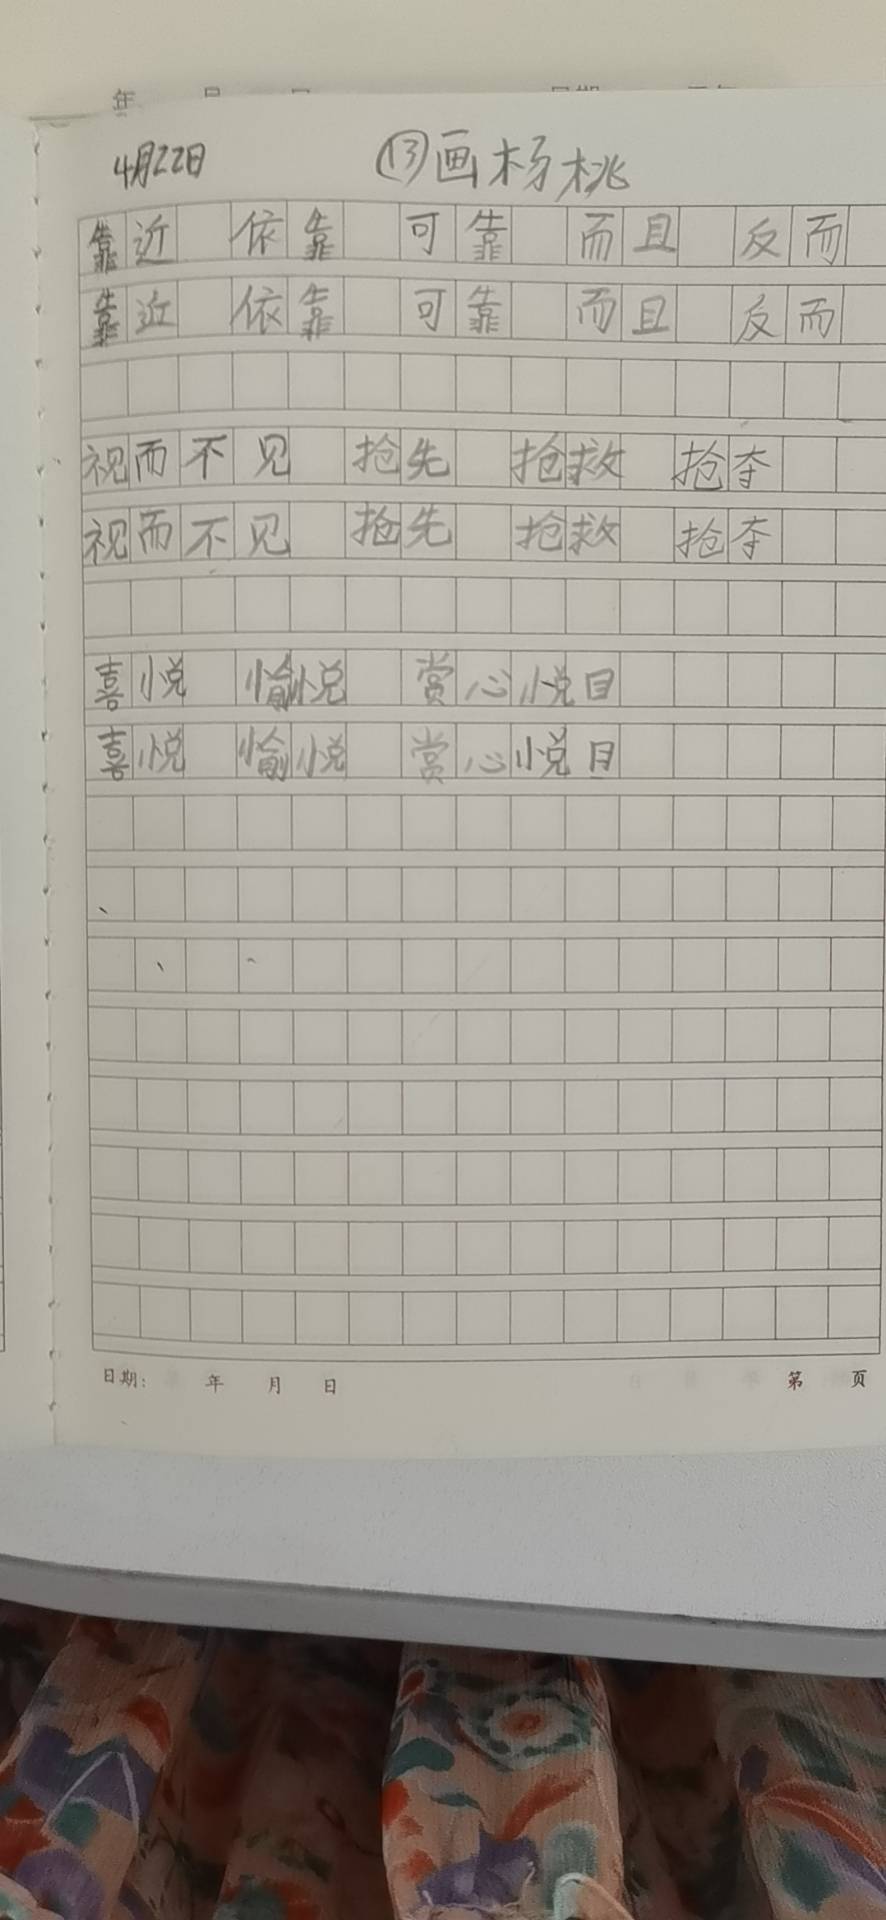 年
4月22日 ⑬画杨桃
靠近 依靠 可靠 而且 反而
靠近 依靠 可靠 而且 反而
视而不见 抢先 抢救 抢夺
视而不见 抢先 抢救 抢夺
喜悦 愉悦 赏心悦目
喜悦 愉悦 赏心悦目
日期: 年 月 日 第 页